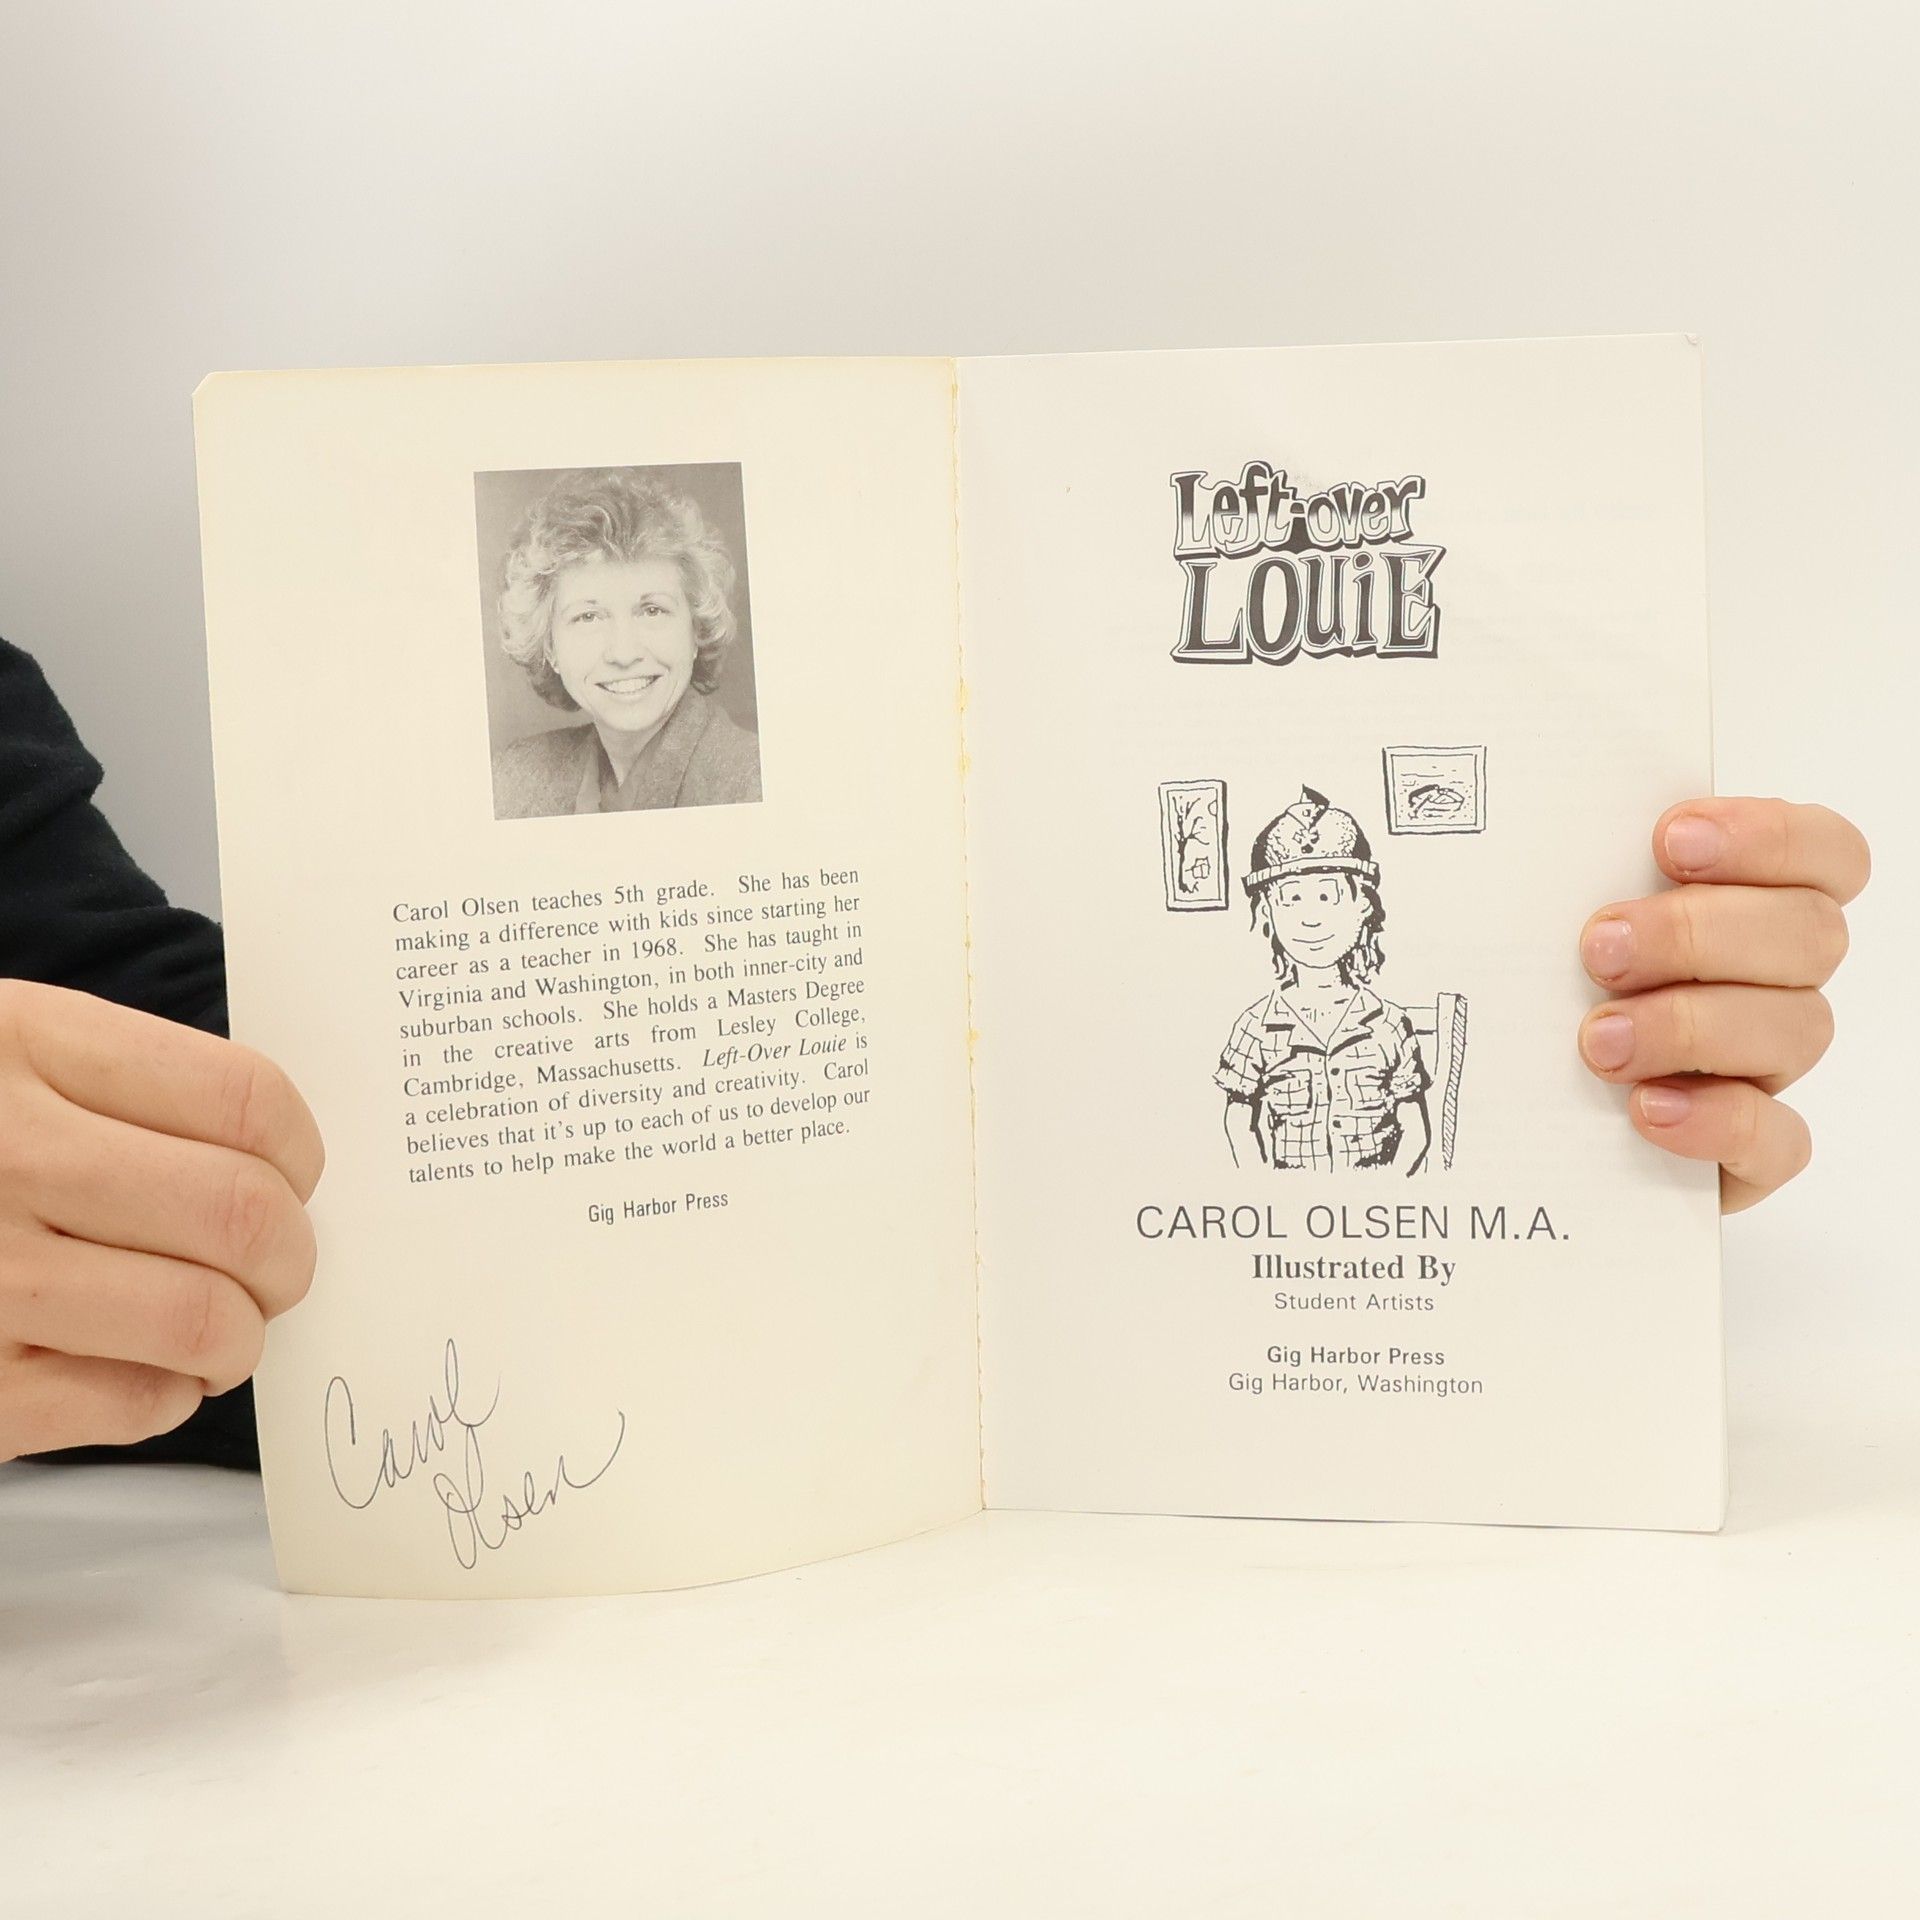 Carol Olsen teaches 5th grade. She has been
making a difference with kids since starting her
career as a teacher in 1968. She has taught in
Virginia and Washington, in both inner-city and
suburban schools. She holds a Masters Degree
in the creative arts from Lesley College,
Cambridge, Massachusetts. Left-Over Louie is
a celebration of diversity and creativity. Carol
believes that it's up to each of us to develop our
talents to help make the world a better place.
Gig Harbor Press
Carol
Olsen
Left-over
LOUiE
CAROL OLSEN M.A.
Illustrated By
Student Artists
Gig Harbor Press
Gig Harbor, Washington